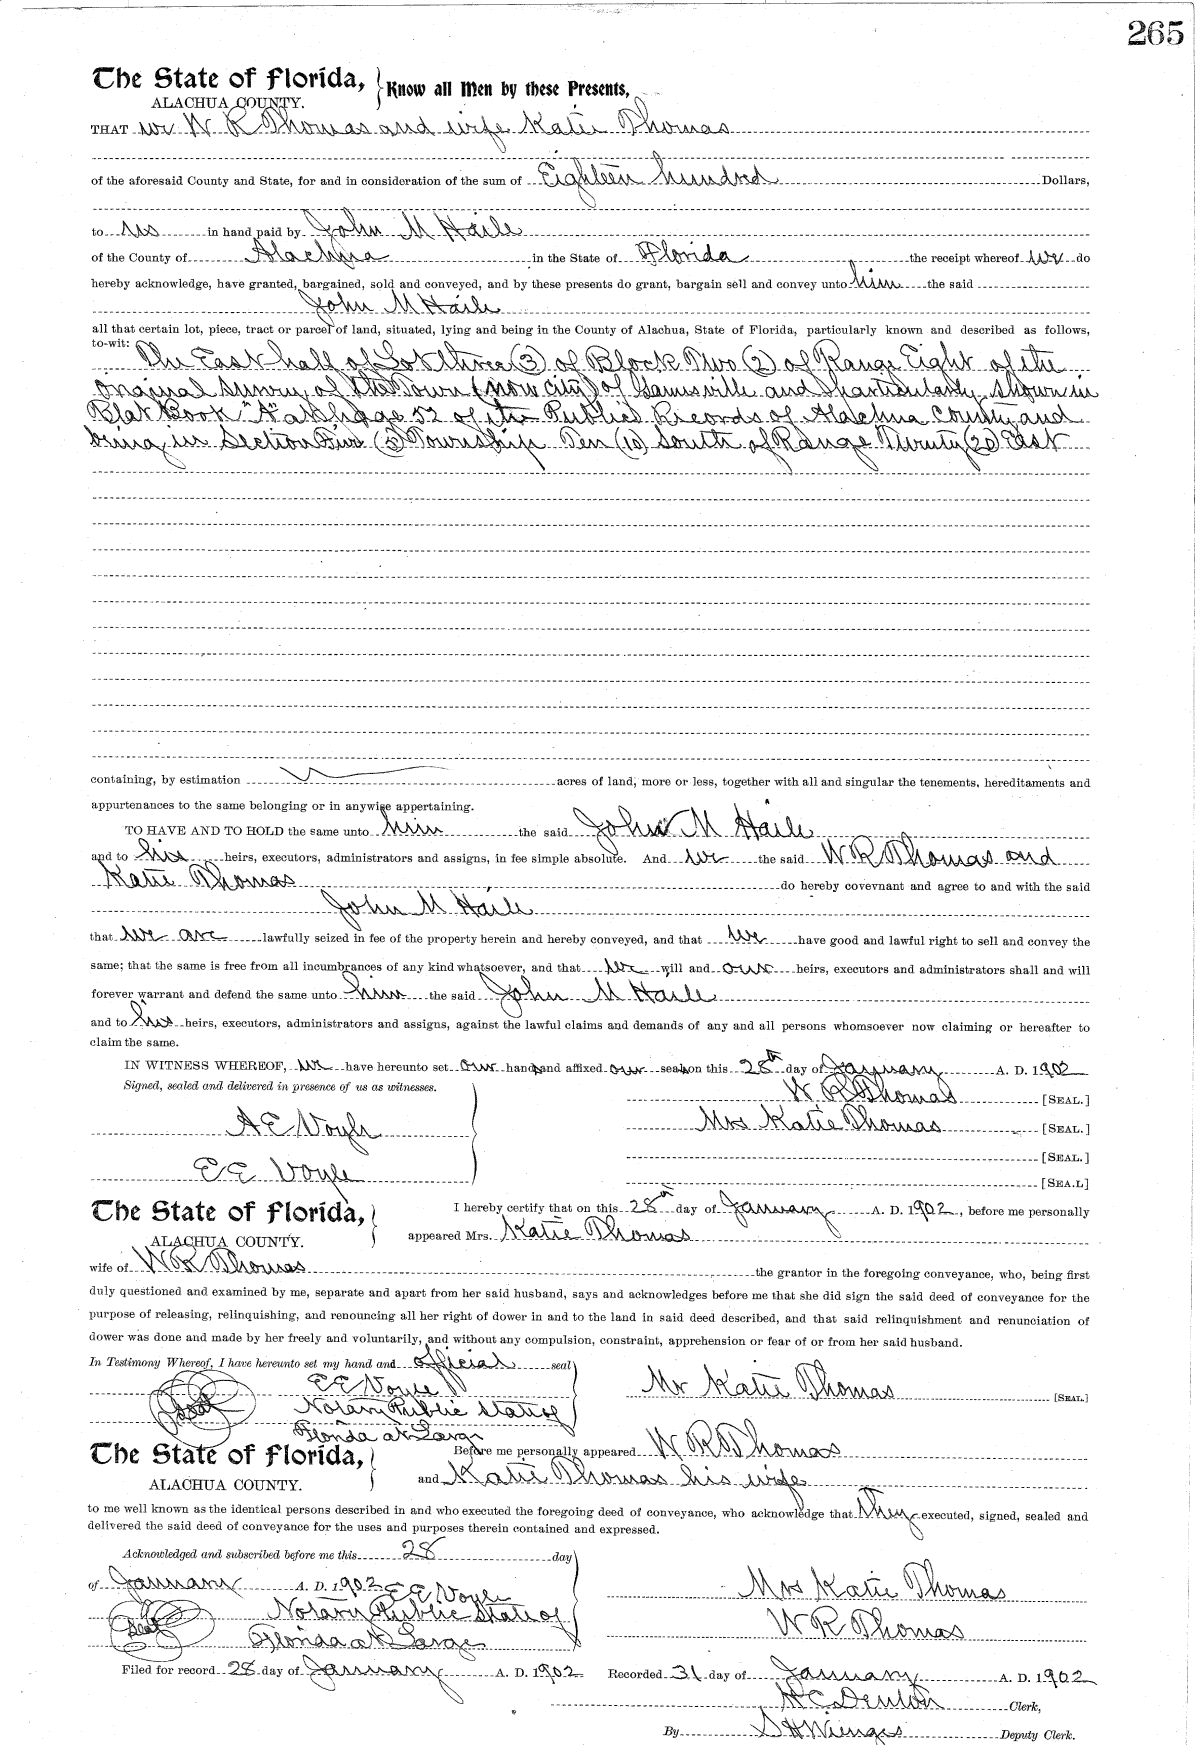 265
The State of Florida, } Know all Men by these Presents,
ALACHUA COUNTY.
THAT we W R Thomas and wife Katie Thomas
of the aforesaid County and State, for and in consideration of the sum of Eighteen hundred Dollars,
to us in hand paid by John M Haile
of the County of Alachua in the State of Florida the receipt whereof we do
hereby acknowledge, have granted, bargained, sold and conveyed, and by these presents do grant, bargain sell and convey unto him the said
John M Haile
all that certain lot, piece, tract or parcel of land, situated, lying and being in the County of Alachua, State of Florida, particularly known and described as follows,
to-wit: The East half of Lot three (3) of Block Two (2) of Range Eight of the
Original Survey of the Town (now city) of Gainesville and particularly shown in
Plat Book "A" at page 52 of the Public Records of Alachua County and
being in Section Five (5) Township Ten (10) South of Range Twenty (20) East
containing, by estimation acres of land, more or less, together with all and singular the tenements, hereditaments and
appurtenances to the same belonging or in anywise appertaining.
TO HAVE AND TO HOLD the same unto him the said John M Haile
and to his heirs, executors, administrators and assigns, in fee simple absolute. And we the said W R Thomas and
Katie Thomas do hereby covevnant and agree to and with the said
John M Haile
that we are lawfully seized in fee of the property herein and hereby conveyed, and that we have good and lawful right to sell and convey the
same; that the same is free from all incumbrances of any kind whatsoever, and that we will and our heirs, executors and administrators shall and will
forever warrant and defend the same unto him the said John M Haile
and to his heirs, executors, administrators and assigns, against the lawful claims and demands of any and all persons whomsoever now claiming or hereafter to
claim the same.
IN WITNESS WHEREOF, we have hereunto set our hands and affixed our seals on this 28th day of January A. D. 1902
Signed, sealed and delivered in presence of us as witnesses.
W R Thomas [SEAL.]
A E Voyle
Mrs Katie Thomas [SEAL.]
[SEAL.]
E E Voyle
[SEA.L]
The State of Florida,
ALACHUA COUNTY.
I hereby certify that on this 28th day of January A. D. 1902, before me personally
appeared Mrs. Katie Thomas
wife of W R Thomas the grantor in the foregoing conveyance, who, being first
duly questioned and examined by me, separate and apart from her said husband, says and acknowledges before me that she did sign the said deed of conveyance for the
purpose of releasing, relinquishing, and renouncing all her right of dower in and to the land in said deed described, and that said relinquishment and renunciation of
dower was done and made by her freely and voluntarily, and without any compulsion, constraint, apprehension or fear of or from her said husband.
In Testimony Whereof, I have hereunto set my hand and official seal
E E Voyle
Mr Katie Thomas [SEAL.]
Seal
Notary Public State of
Florida at Large
The State of Florida,
ALACHUA COUNTY.
Before me personally appeared W R Thomas
and Katie Thomas his wife
to me well known as the identical persons described in and who executed the foregoing deed of conveyance, who acknowledge that they executed, signed, sealed and
delivered the said deed of conveyance for the uses and purposes therein contained and expressed.
Acknowledged and subscribed before me this 28 day
of January A. D. 1902 E E Voyle
Mrs Katie Thomas
Seal
Notary Public State of
W R Thomas
Florida at Large
Filed for record 28 day of January A. D. 1902 Recorded 31 day of January A. D. 1902
H C Denton Clerk,
By S H Wienges Deputy Clerk.